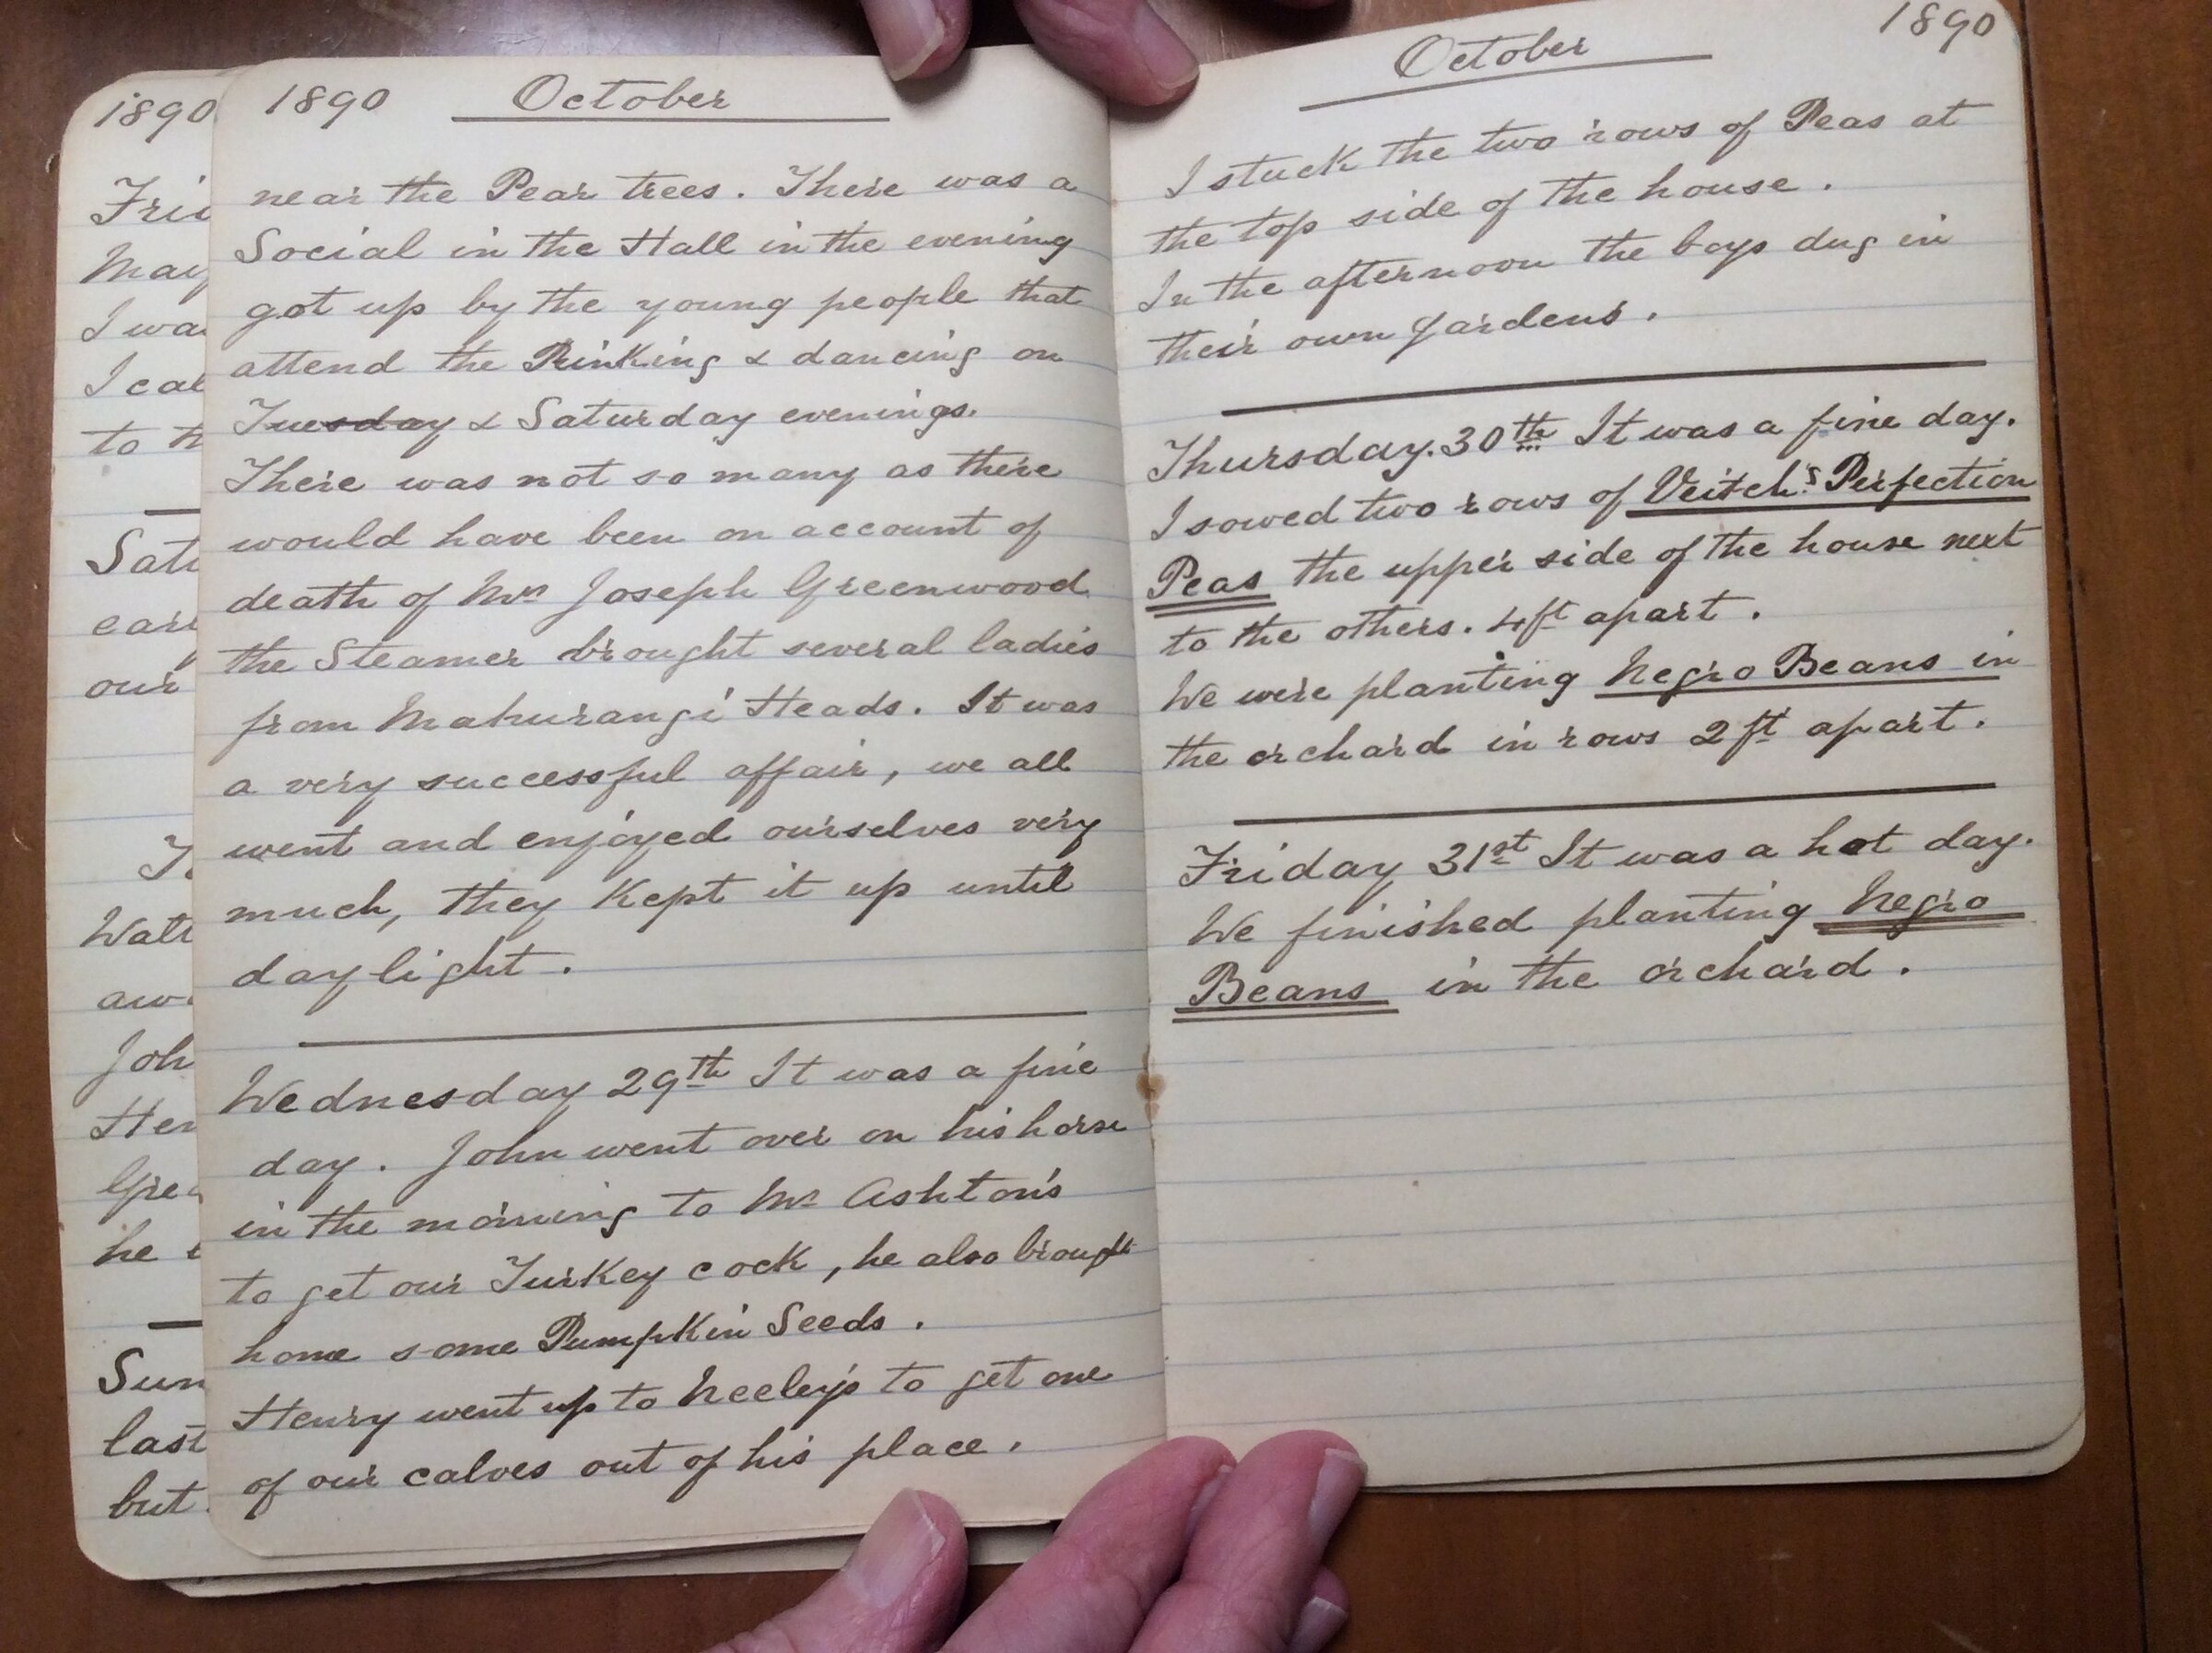 1890
Fri
May
I wa
I cal
to
Satu
earl
our
Walt
awa
Joh
Hen
Gree
he
Sun
last
but
1890 October
near the Pear trees. There was a
Social in the Hall in the evening
got up by the young people that
attend the Rinking & dancing on
Tuesday & Saturday evenings.
There was not so many as there
would have been on account of
death of Mrs Joseph Greenwood
the Steamer brought several ladies
from Mahurangi Heads. It was
a very successful affair, we all
went and enjoyed ourselves very
much, they Kept it up until
daylight.
Wednesday 29th It was a fine
day. John went over on his horse
in the morning to Mr Ashton's
to get our Turkey cock, he also brought
home some Pumpkin Seeds.
Henry went up to Neeley's to get one
of our calves out of his place.
October 1890
I stuck the two rows of Peas at
the top side of the house.
In the afternoon the boys dug in
their own gardens.
Thursday. 30th It was a fine day.
I sowed two rows of Veitch's Perfection
Peas the upper side of the house next
to the others. 4ft apart.
We were planting Negro Beans in
the orchard in rows 2 ft apart.
Friday 31st It was a hot day.
We finished planting Negro
Beans in the orchard.